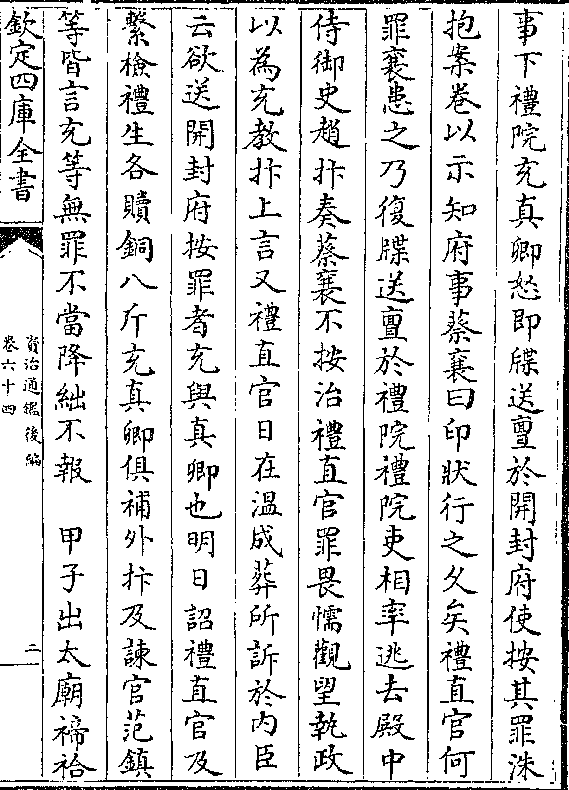 事下禮院充真卿怒即牒送亶於開封府使按其罪洙
抱案卷以示知府事蔡襄曰印狀行之久矣禮直官何
罪襄患之乃復牒送亶於禮院禮院吏相率逃去殿中
侍御史趙抃奏蔡襄不按治禮直官罪畏懦觀望執政
以為充教抃上言又禮直官日在温成葬所訴於内臣
云欲送開封府按罪者充與真卿也明日詔禮直官及
繫檢禮生各贖銅八斤充真卿俱補外抃及諫官范鎮
等皆言充等無罪不當降絀不報　甲子出太廟禘祫
欽定四庫全書
資治通鑑後編
卷六十四
二